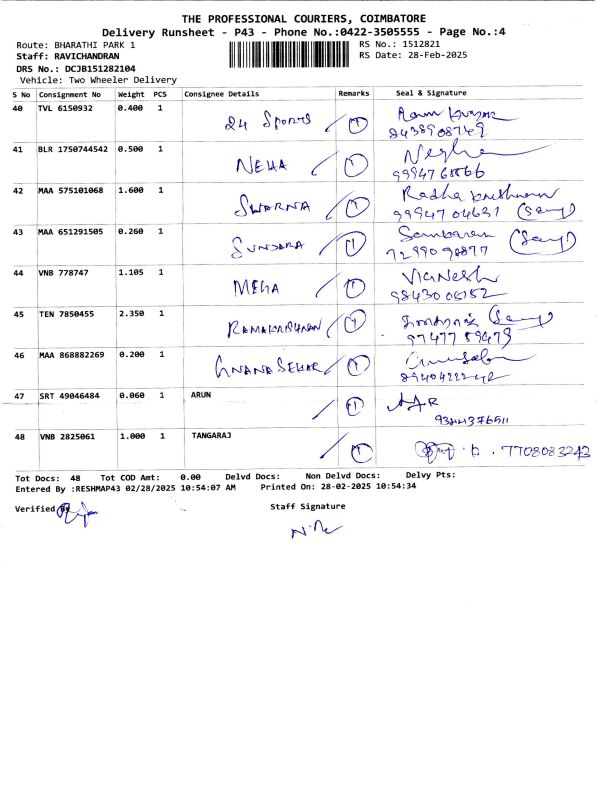 THE PROFESSIONAL COURIERS, COIMBATORE
Delivery Runsheet - P43 - Phone No.:0422-3505555 - Page No.:4
Route: BHARATHI PARK 1 RS No.: 1512821
Staff: RAVICHANDRAN RS Date: 28-Feb-2025
DRS No.: DCJB151282104
Vehicle: Two Wheeler Delivery
S No Consignment No Weight PCS Consignee Details Remarks Seal & Signature
40 TVL 6150932 0.400 1 24 Sports 1
8438908749
41 BLR 1750744542 0.500 1 NEHA 1
42 MAA 575101068 1.600 1 SWARNA 1 Radha krishnan
99947 04631
43 MAA 651291505 0.260 1 SUNDARA 1
44 VNB 778747 1.105 1 MEGA 1 Vignesh
45 TEN 7850455 2.350 1 RAMAKRISHNAN 1
97477 59479
46 MAA 868882269 0.200 1 GNANASEKAR 1
47 SRT 49046484 0.060 1 ARUN 1
48 VNB 2825061 1.000 1 TANGARAJ 1 7708083243
Tot Docs: 48 Tot COD Amt: 0.00 Delvd Docs: Non Delvd Docs: Delvy Pts:
Entered By :RESHMAP43 02/28/2025 10:54:07 AM Printed On: 28-02-2025 10:54:34
Verified By Staff Signature